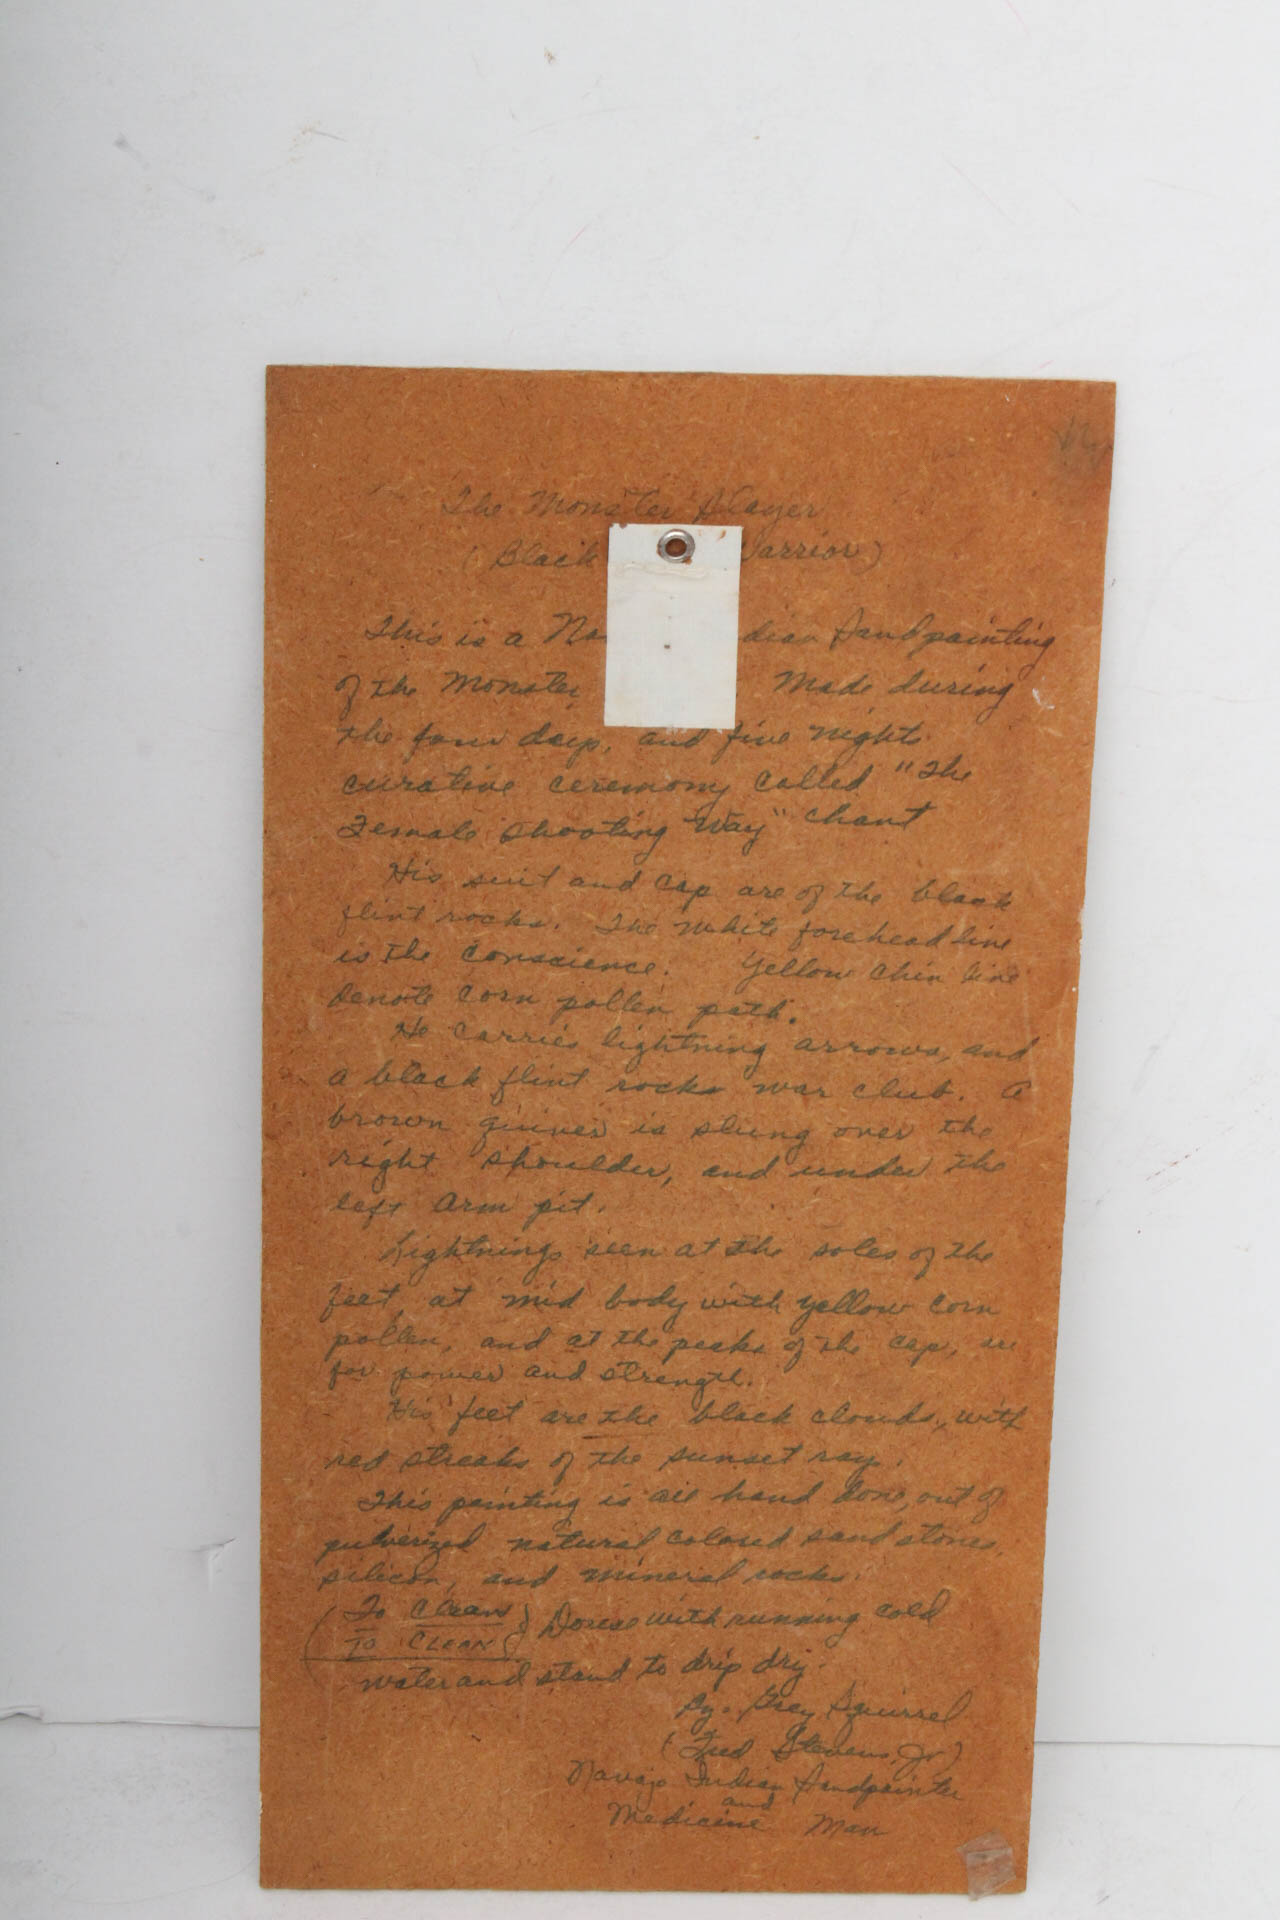 The Monster Slayer
(Black Warrior)
This is a Na dian Sandpainting
of the Monster Made during
the four days, and five nights
curative ceremony called "The
Female Shooting Way" Chant
His suit and cap are of the black
flint rocks. The white forehead line
is the conscience. Yellow chin line
denote corn pollen path.
He carries lightning arrows, and
a black flint rocks war club. A
brown quiver is slung over the
right shoulder, and under the
left arm pit.
Lightnings seen at the soles of the
feet, at mid body with yellow corn
pollen, and at the peaks of the cap, are
for power and strength.
His feet are the black clouds, with
red streaks of the sunset ray.
This painting is all hand done, out of
pulverized natural colored sand stones,
silicon, and mineral rocks.
(To Clean
TO CLEAN) Douse with running cold
water and stand to drip dry.
By. Grey Squirrel
(Fred Stevens, Jr)
Navajo Indian Sandpainter
and
Medicine Man